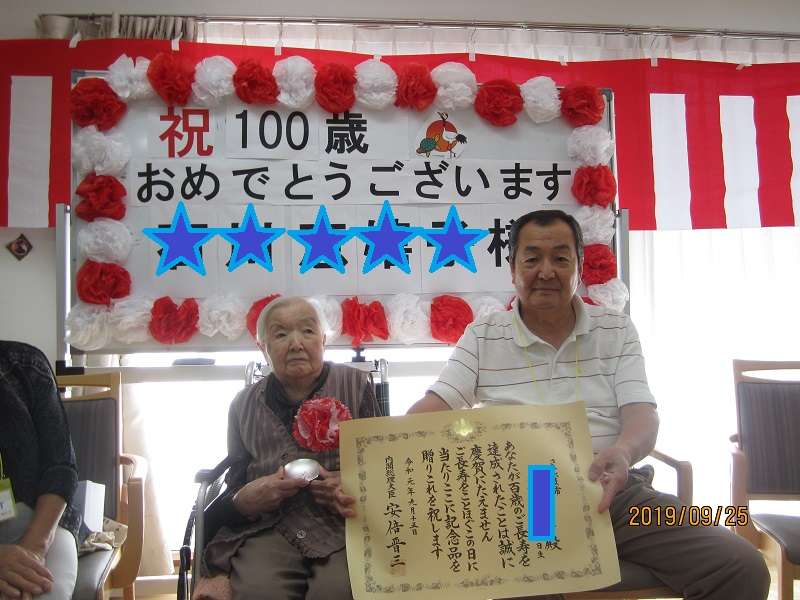 祝 100 歳
おめでとうございます
様
殿
あなたが百歳のご長寿を
達成されたことは誠に
慶賀にたえません
ご長寿をことほぐこの日に
当たりここに記念品を
贈りこれを祝します
令和元年九月十五日
内閣総理大臣 安倍晋三
2019/09/25